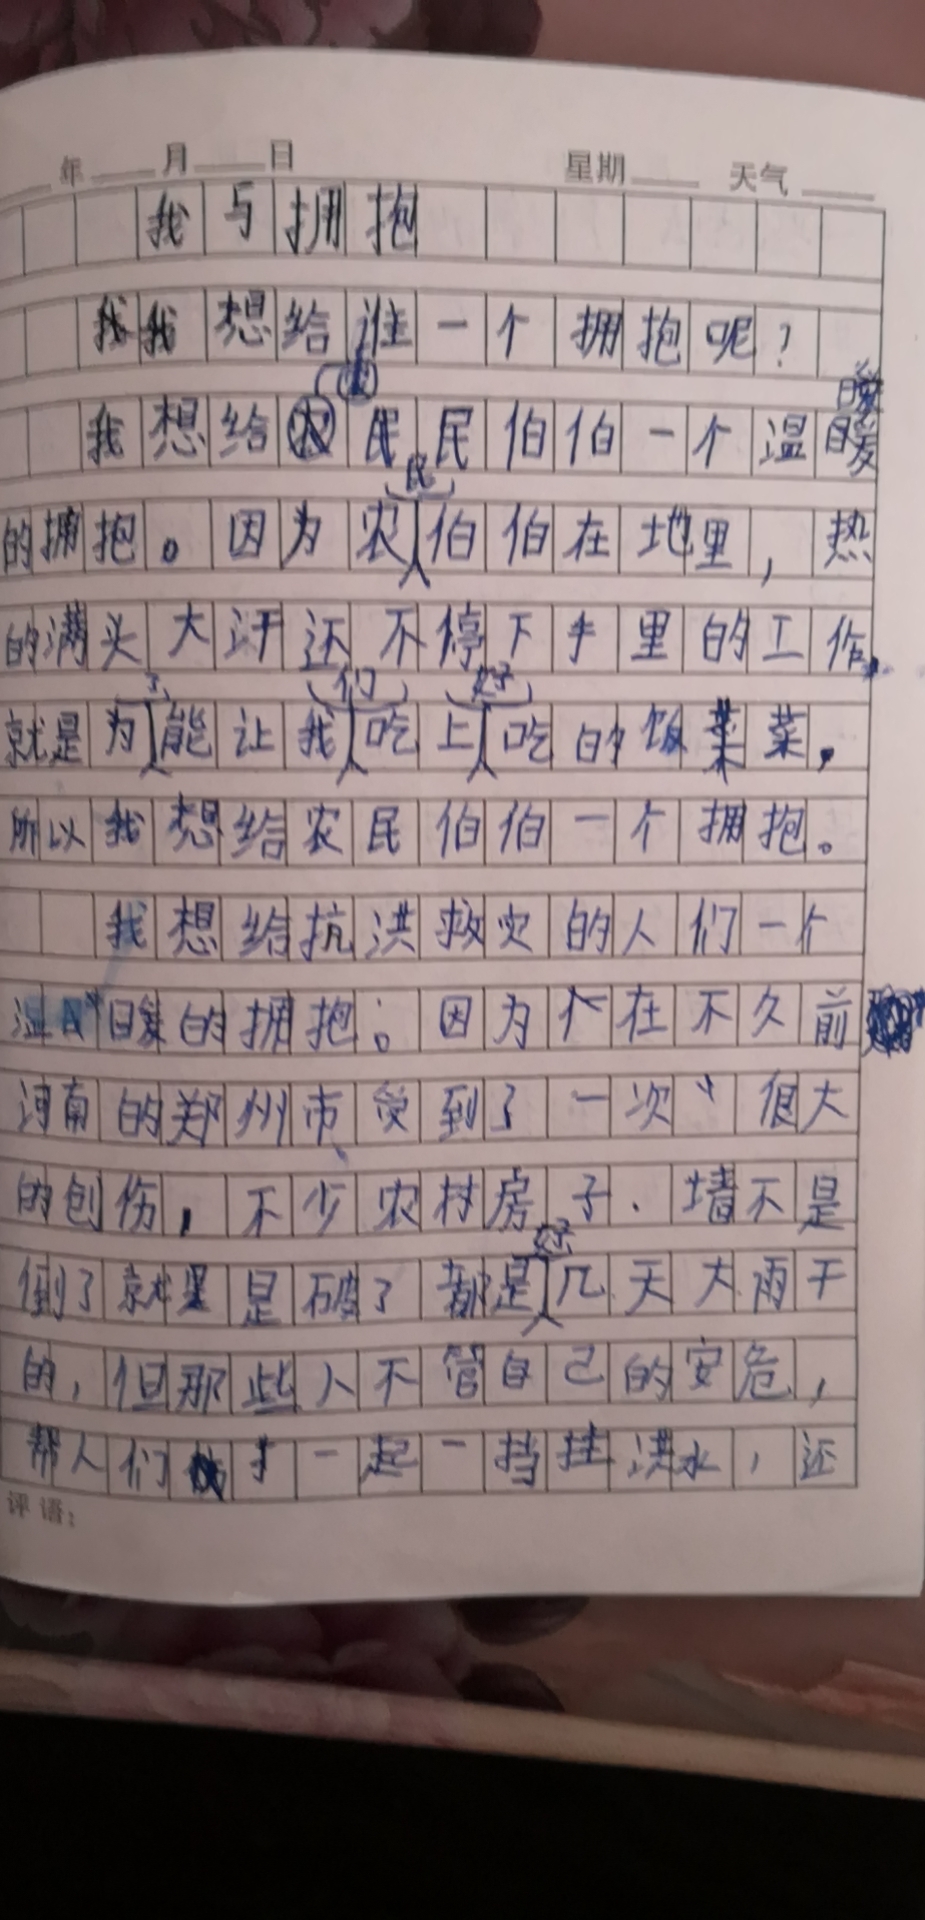 年 月 日 星期 天气
我与拥抱
我想给谁一个拥抱呢?
我想给农民伯伯一个温暖
的拥抱。因为农民伯伯在地里,热
的满头大汗还不停下手里的工作,
就是为了能让我们吃上好吃的饭菜,
所以我想给农民伯伯一个拥抱。
我想给抗洪救灾的人们一个
温暖的拥抱。因为在不久前
河南的郑州市受到了一次很大
的创伤,不少农村房子、墙不是
倒了就是破了都是好几天大雨干
的,但那些人不管自己的安危,
帮人们一起挡洪水,还
评语: